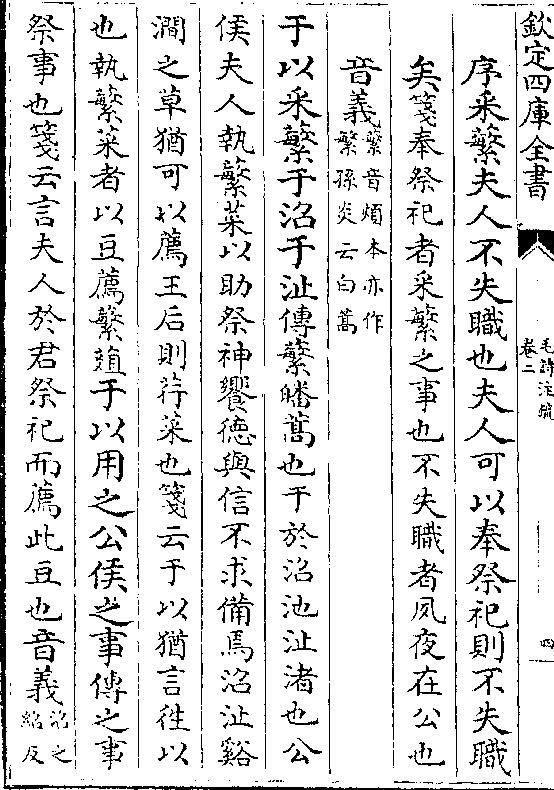 欽定四庫全書
毛詩注疏
卷二
四
序采蘩夫人不失職也夫人可以奉祭祀則不失職
矣箋奉祭祀者采蘩之事也不失職者夙夜在公也
音義蘩音煩本亦作
繁孫炎云白蒿
于以采蘩于沼于沚傳蘩皤蒿也于於沼池沚渚也公
侯夫人執蘩菜以助祭神饗德與信不求備焉沼沚谿
澗之草猶可以薦王后則荇菜也箋云于以猶言往以
也執蘩菜者以豆薦蘩葅于以用之公侯之事傳之事
祭事也箋云言夫人於君祭祀而薦此豆也音義沼之
紹反